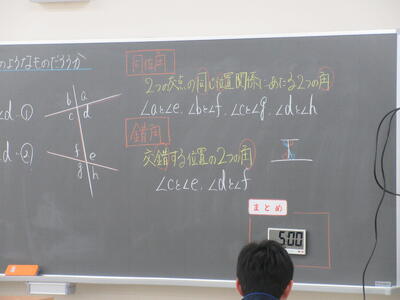 のようなものだろうか
同位角
2つの交点の同じ位置関係にあたる2つの角
∠aと∠e、∠bと∠f、∠cと∠g、∠dと∠h
錯角
交錯する位置の2つの角
∠cと∠e、∠dと∠f
∠d…①
∠d…②
b a
c d
f e
g h
まとめ
5:00